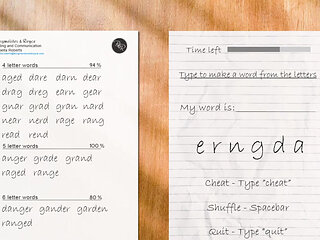 4 letter words 94 %
aged dare darn dear
drag dreg earn gear
gnar grad gran nard
near nerd rage rang
read rend
5 letter words 100 %
anger grade grand
raged range
6 letter words 80 %
danger gander garden
ranged
Time left
Type to make a word from the letters
My word is:
e r n g d a
Cheat - Type "cheat"
Shuffle - Spacebar
Quit - Type "quit"